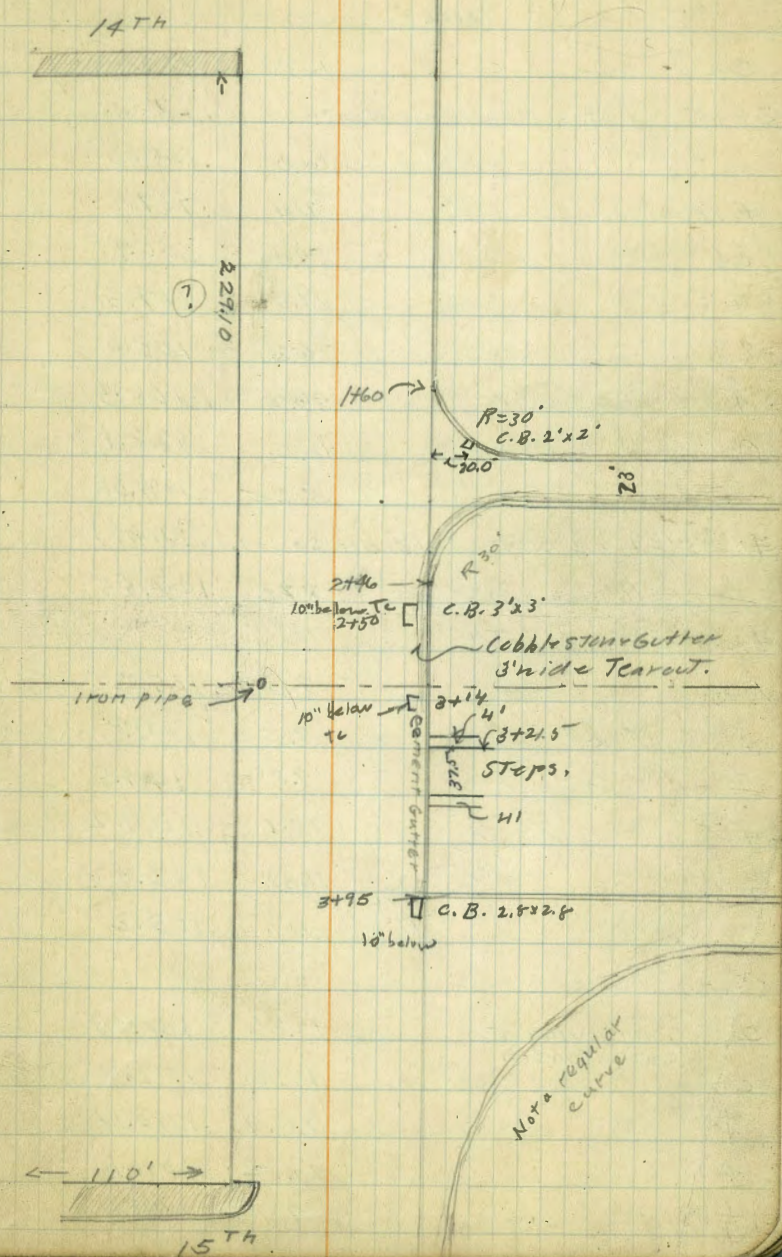 14TH
229.10
?
1+60
R=30'
C.B. 2'x2'
20.0
28'
R 30'
2+46
10" below Tc
2+50
C.B. 3'x3'
Cobble stone Gutter
3' wide Tearout.
Iron pipe
10" below
Tc
3+14
4'
3+21.5
Steps.
4'
Cement Gutter
3+95
C.B. 2.8x2.8
10" below
Not a regular
curve
110'
15TH